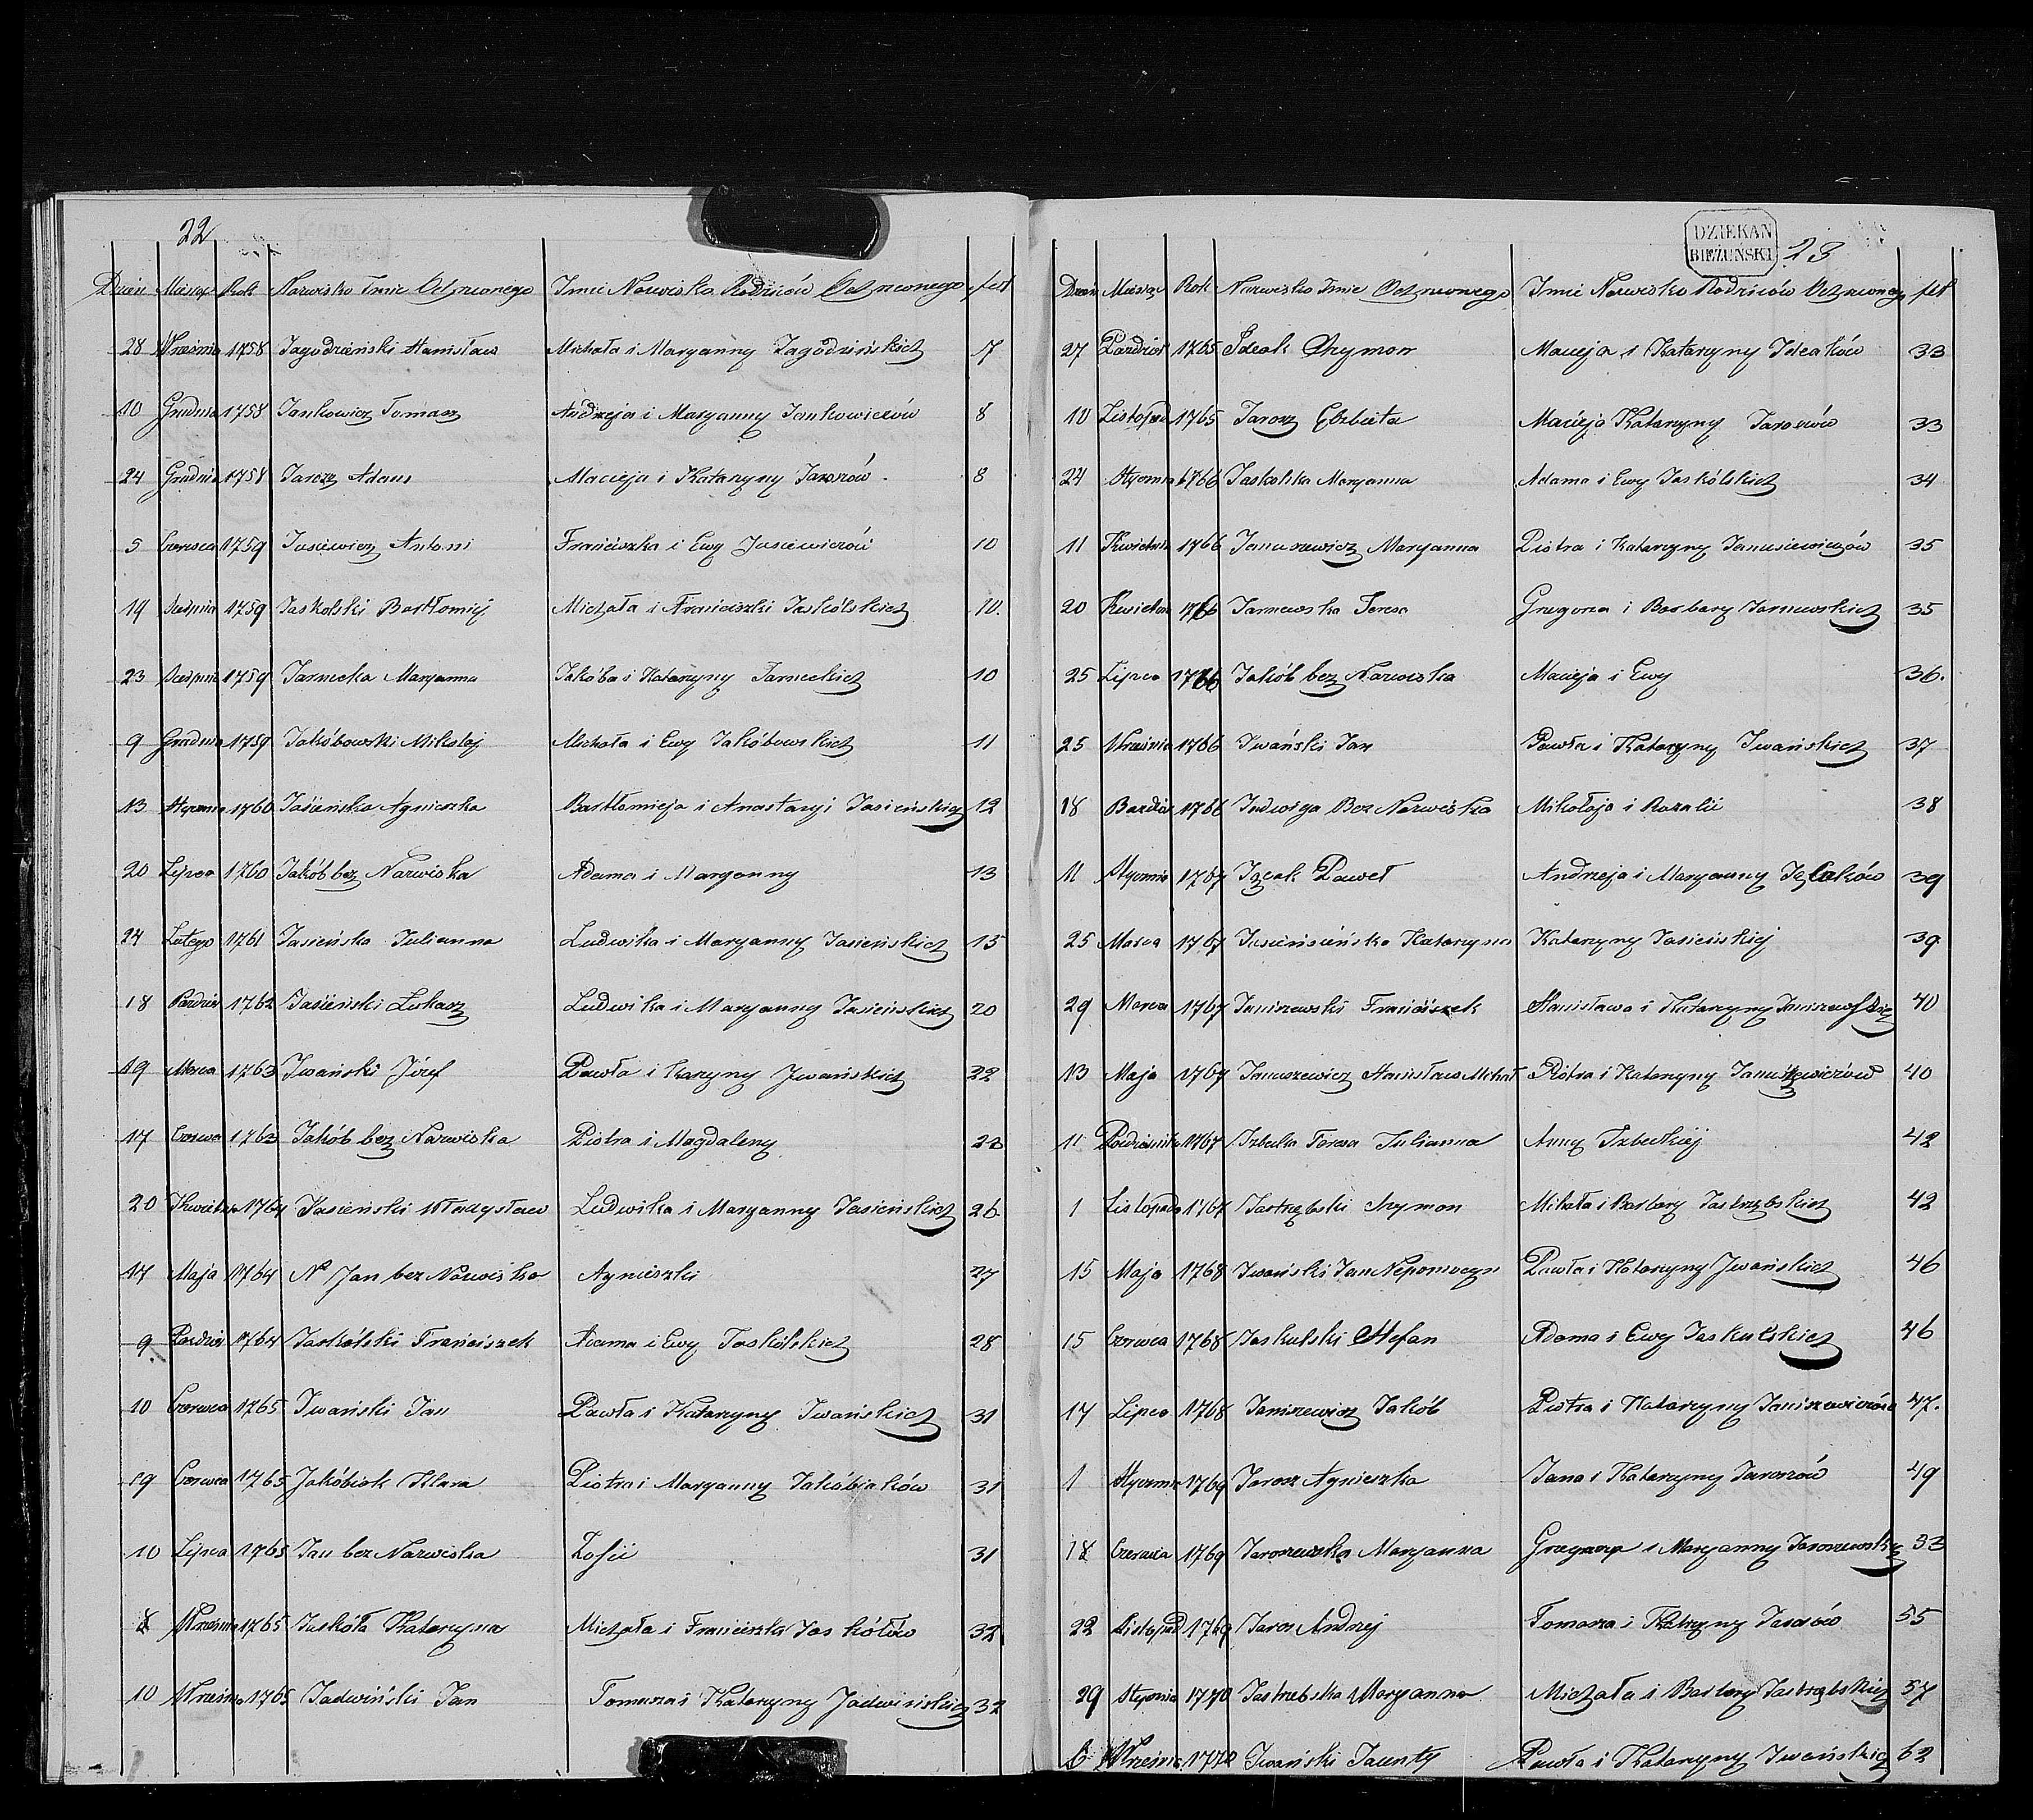 22
Dzień Miesiąc Rok Nazwisko Imie Ochrzconego Imie Nazwisko Rodziców Ochrzconego
28 Wrześnio 1758 Jagodzieński Stanisław Michała i Maryanny Jagodzińskich 7
10 Grudnia 1758 Jankowicz Tomasz Andrzeja i Maryanny Jankowiczów 8
24 Grudnia 1758 Jarosz Adam Macieja i Katarzyny Jaroszów 8
5 Czerwca 1759 Jasiewicz Antoni Franciszka i Ewy Jasiewiczów 10
19 Sierpnia 1759 Jaskolski Bartłomiej Michała i Franciszki Jaskólskich 10.
23 Sierpnia 1759 Jarnecka Maryanna Jakóba i Katarzyny Jarneckich 10
9 Grudnia 1759 Jakóbowski Mikołaj Michała i Ewy Jakóbowskich 11
13 Stycznia 1760 Jasieńska Agnieszka Bartłomieja i Anastazyi Jasieńskich 12
20 Lipca 1760 Jakób bez Nazwiska Adama i Maryanny 13
24 Lutego 1761 Jasieńska Julianna Ludwika i Maryanny Jasieńskich 15
18 Paździer 1762 Jasieński Łukasz Ludwika i Maryanny Jasieńskich 20
19 Marca 1763 Iwański Józef Pawła i Kazyny Iwańskich 22
17 Czerwca 1763 Jakób bez Nazwiska Piotra i Magdaleny 23
20 Kwietnia 1764 Jasieński Władysław Ludwika i Maryanny Jasieńskich 26
17 Maja 1764 N Jan bez Nazwiska Agnieszki 27
9 Paździer 1764 Jaskólski Franciszek Adama i Ewy Jaskólskich 28
10 Czerwca 1765 Iwański Jan Pawła i Katarzyny Iwańskich 31
19 Czerwca 1765 Jakóbiak Klara Piotra i Maryanny Jakóbiaków 31
10 Lipca 1765 Jan bez Nazwiska Zofii 31
8 Wrześnio 1765 Jaskóła Katarzyna Michała i Franciszka Jaskółów 32
10 Wrześnio 1765 Jadwiński Jan Tomasza i Katarzyny Jadwińskich 32
DZIEKAN
BIEŻUŃSKI
23
Dzień Miesiąc Rok Nazwisko Imie Ochrzconego Imie Nazwisko Rodziców Ochrzconego
27 Paździer 1765 Ideak Szymon Macieja i Katarzyny Ideaków 33
10 Listopad 1765 Jarosz Elżbieta Macieja Katarzyny Jaroszów 33
24 Stycznia 1766 Jaskolska Maryanna Adama i Ewy Jaskólskich 34
11 Kwietnia 1766 Januszewicz Maryanna Piotra i Katarzyny Janusiewiczów 35
20 Kwietnia 1766 Jarnewska Teresa Grzegorza i Barbary Jarnewskich 35
25 Lipca 1766 Jakób bez Nazwiska Macieja i Ewy 36.
25 Wrześnio 1766 Iwański Jan Pawła i Katarzyny Iwańskich 37
18 Pazdzier 1766 Jadwiga Bez Nazwiska Mikołaja i Rozalii 38
11 Stycznia 1767 Paweł Andrzeja i Maryanny 39
25 Marca 1767 Jasieńscieńska Katarzyna Katarzyny Jasieńskiej 39
29 Marca 1767 Janiszewski Franciszek Stanisława i Katarzyny Janiszewskich 40
13 Maja 1767 Januszewicz Stanisław Michał Piotra i Katarzyny Januszewiczów 40
11 Październiko 1767 Izbecka Teresa Julianna Anny Izbeckiej 42
1 Listopada 1767 Jastrzębski Szymon Michała i Barbary Jastrzębskich 42
15 Maja 1768 Iwański Jan Nepomucyn Pawła i Katarzyny Iwańskich 46
15 Czerwca 1768 Jaskulski Stefan Adama i Ewy Jaskulskich 46
17 Lipca 1768 Janiszewicz Jakób Piotra i Katarzyny Janiszewiczów 47.
1 Stycznia 1769 Jarosz Agnieszka Jana i Katarzyny Jaroszów 49
18 Czerwca 1769 Jaroszewska Maryanna Grzegorza i Maryanny Jaroszewskich 53
22 Listopad 1769 Jaros Andrzej Tomasza i Katrzyny Jarosów 55
29 Stycznia 1770 Jastrzebska Maryanna Michała i Barbary Jastrzębskich 57
6 Wrześnio 1772 Iwański Jacenty Pawła i Katarzyny Iwańskich 62